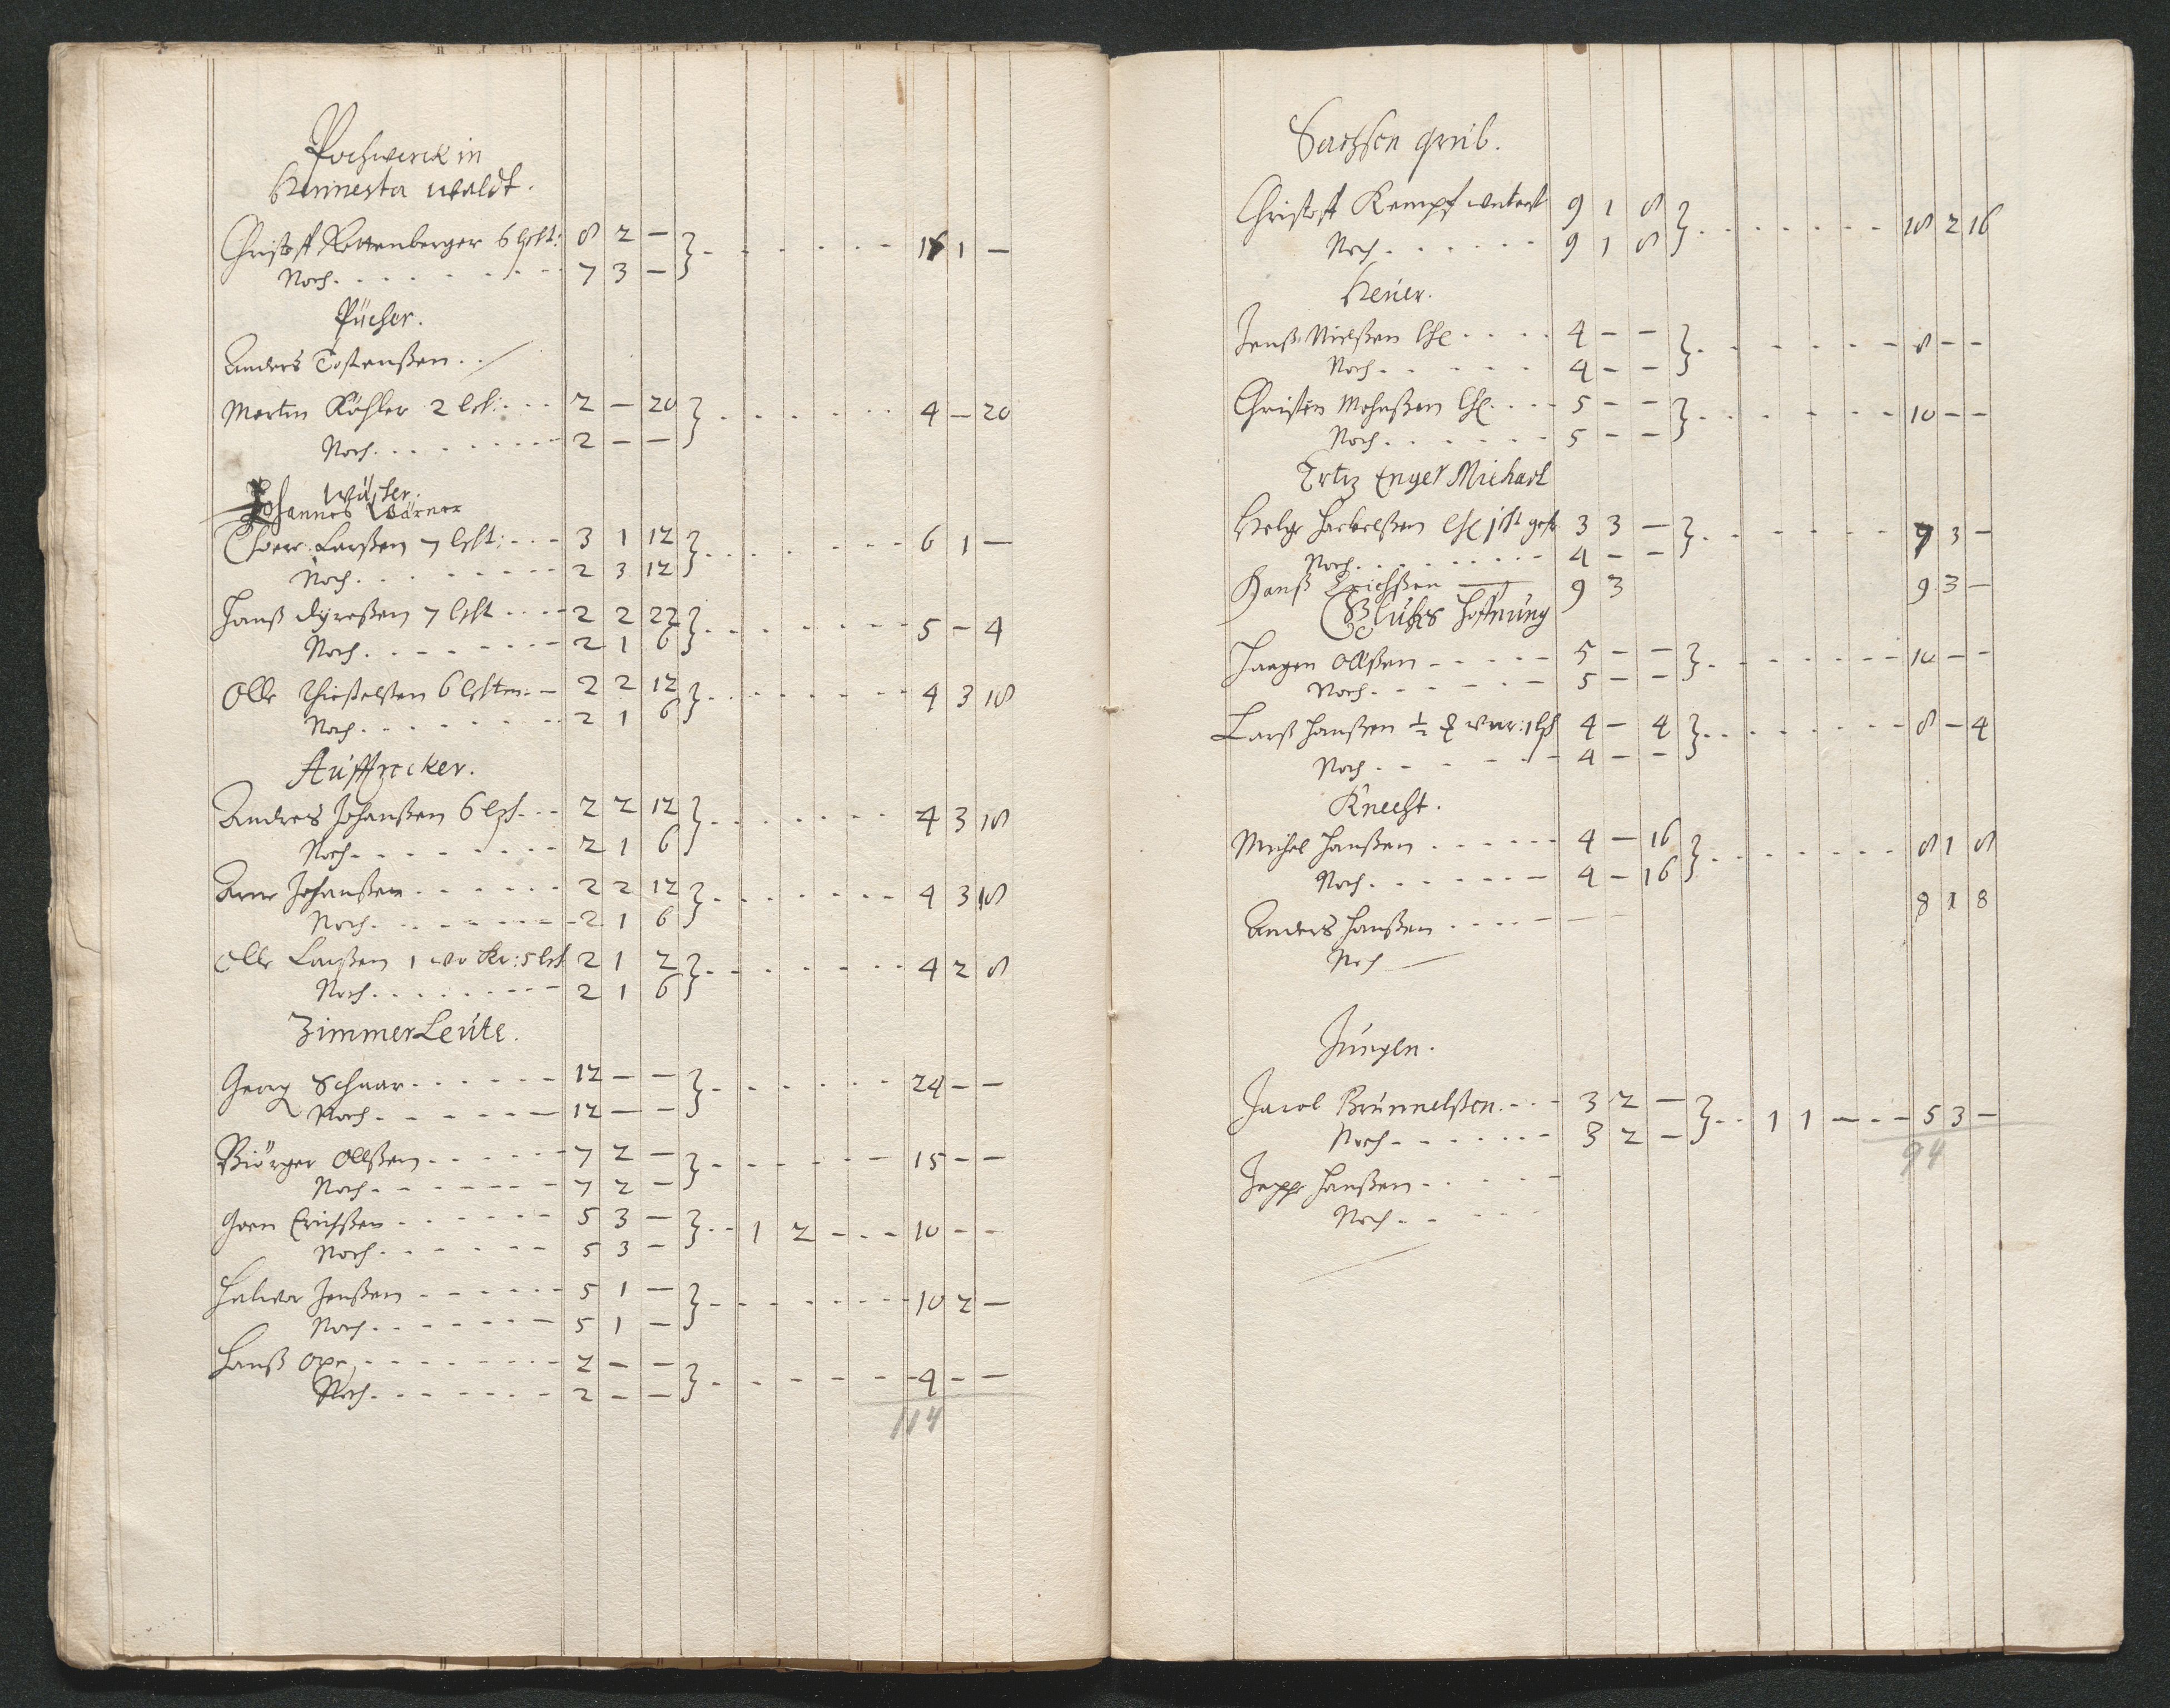 Pochwerck in
Hennesta waldt.
Christoff Rottenberger 6 lcht: 8 2 — } 16 1 —
Noch. 7 3 —
Pücher.
Anders Tostenßen.
Martin Köhler 2 lch: 2 — 20 } 4 — 20
Noch. 2 — —
Wäscher.
Johannes Wärner
Thoer Larßen 7 lcht: 3 1 12 } 6 1 —
Noch. 2 3 12
Hanß dyreßen 7 lcht 2 2 22 } 5 — 4
Noch. 2 1 6
Olle Thiestelßen 6 lchten. 2 2 12 } 4 3 18
Noch. 2 1 6
Auffzecker.
Andres Johanßen 6 lch. 2 2 12 } 4 3 18
Noch. 2 1 6
Arne Johanßen 2 2 12 } 4 3 18
Noch. 2 1 6
Olle Larßen 1 wo kr: 5 lch 2 1 2 } 4 2 8
Noch. 2 1 6
Zimmer Leüte.
Georg Schaar. 12 — — } 24 — —
Noch. 12 — —
Biörger Ollßen. 7 2 — } 15 — —
Noch. 7 2 —
Goen Erichßen. 5 3 — } 1 2 — 10 — —
Noch. 5 3 —
Halvor Jenßen 5 1 — } 10 2 —
Noch. 5 1 —
Hanß Ope 2 — — } 4 — —
Noch. 2 — —
114
Sachsen grub.
Christoff Kempf 9 1 8 } 18 2 16
Noch. 9 1 8
Heüer.
Jenß Nielßen 4 — — } 8 — —
Noch. 4 — —
Christen Mohnßen 5 — — } 10 — —
Noch. 5 — —
Ertz Engel Michael
Helge 3 3 — } 7 3 —
Noch. 4 — —
Hanß Erichßen 9 3 9 3 —
Glükes Hoffnung
Haagen Ollßen 5 — — } 10 — —
Noch. 5 — —
Larß Hanßen ½ 4 — 4 } 8 — 4
Noch. 4 — —
Knecht.
Michel Hanßen 4 — 16 } 8 1 8
Noch. 4 — 16
Anders Hanßen 8 1 8
Noch
Jungen.
Jacob Brunnelßen. 3 2 — } 1 1 — 5 3 —
Noch 3 2 —
94
Jeppe Hanßen.
Noch.